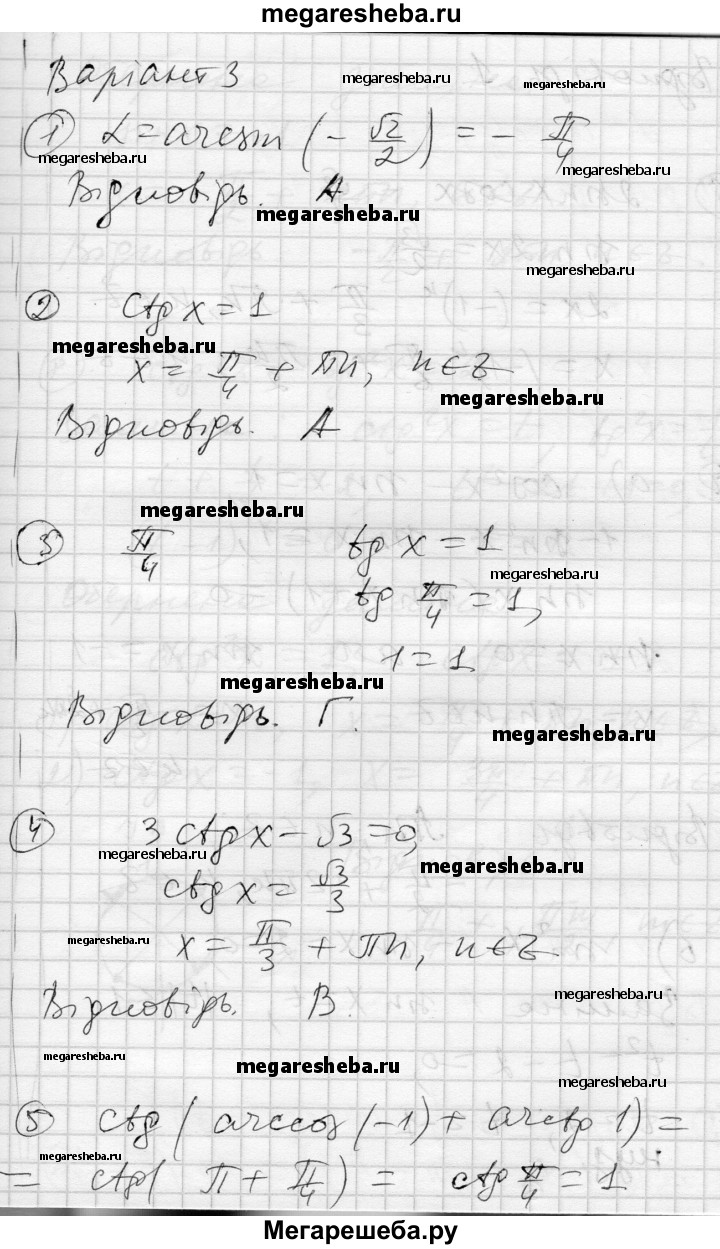 megaresheba.ru
Варіант 3
megaresheba.ru
① α = arcsin (- √2/2) = - π/4
megaresheba.ru
megaresheba.ru
Відповідь. А
megaresheba.ru
megaresheba.ru
② ctg x = 1
megaresheba.ru
x = π/4 + πn, n∈Z
megaresheba.ru
Відповідь. А
megaresheba.ru
③ π/4 tg x = 1
megaresheba.ru
tg π/4 = 1,
1 = 1
megaresheba.ru
Відповідь. Г.
megaresheba.ru
④ 3 ctg x - √3 = 0,
megaresheba.ru
megaresheba.ru
ctg x = √3/3
megaresheba.ru
x = π/3 + πn, n∈Z
Відповідь. В.
megaresheba.ru
megaresheba.ru
megaresheba.ru
megaresheba.ru
⑤ ctg (arccos (-1) + arctg 1) =
megaresheba.ru
= ctg( π + π/4 ) = ctg π/4 = 1
Мегарешеба.ру